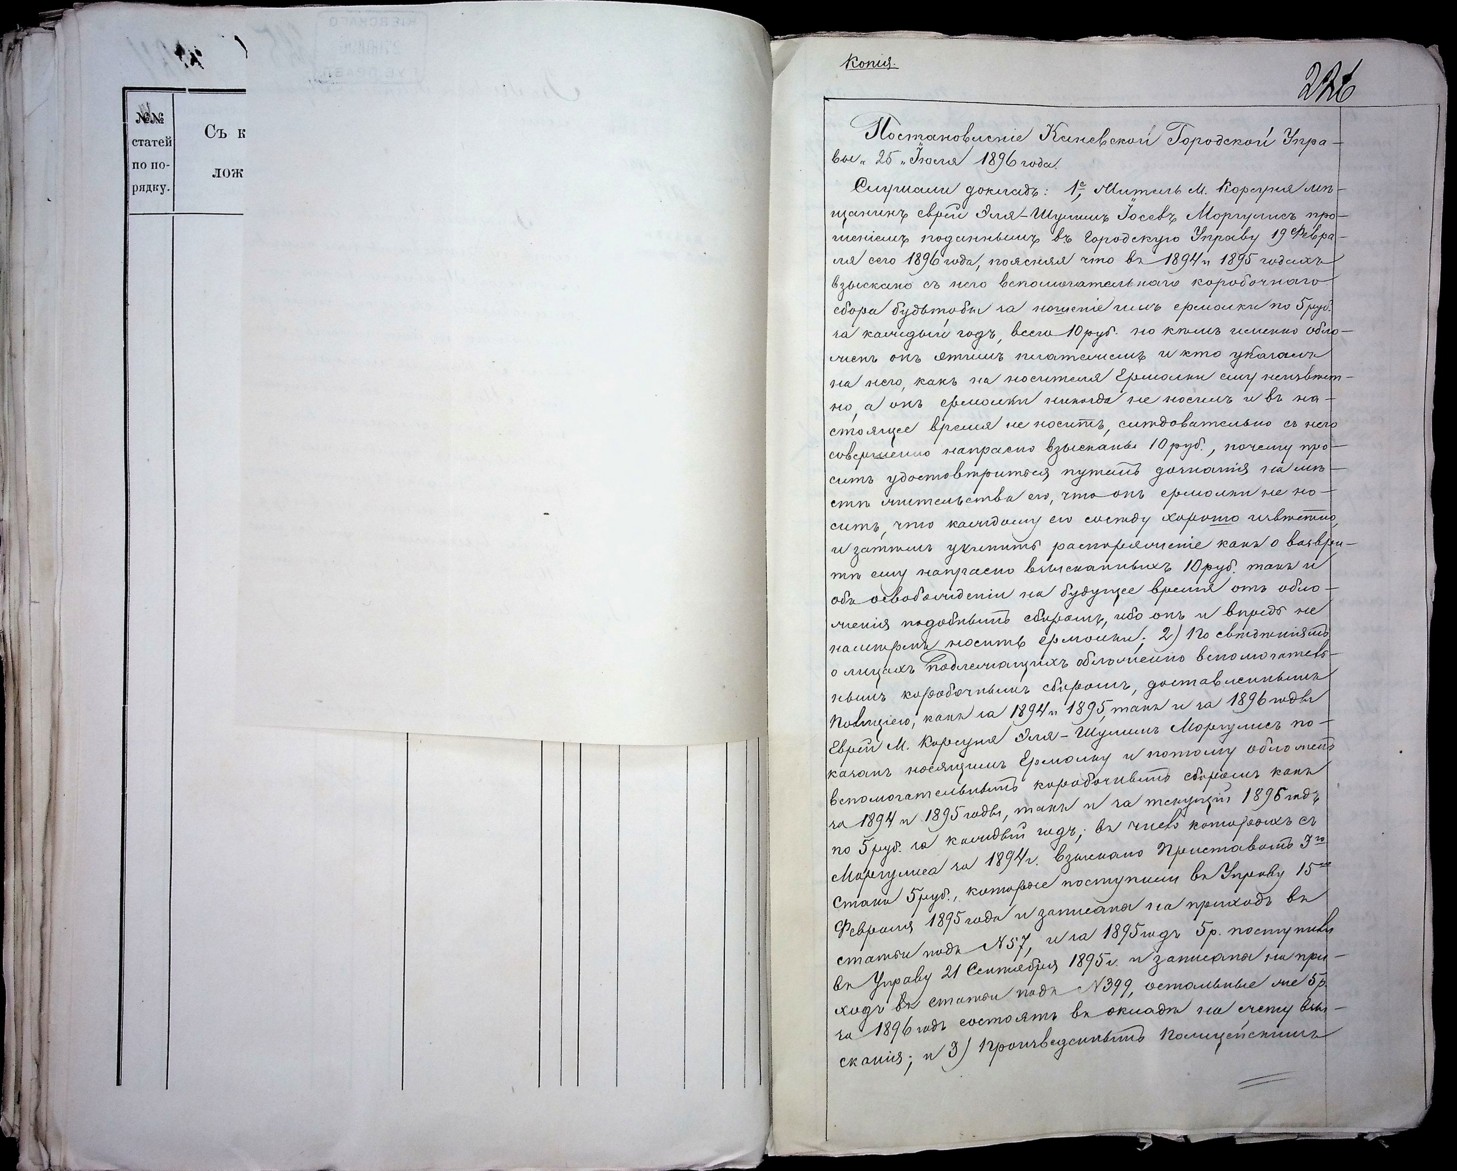 №№
статей
по по-
рядку.
Съ к
лож
Копія.
226
Постановленіе Каневской Городской Упра-
вы „25„ Іюля 1896 года.
Слушали докладъ: 1е, Житель м. Корсуня мѣ-
щанинъ еврей Эля-Шулимъ Іосевъ Моргулисъ про-
шеніемъ поданнымъ въ Городскую Управу 19 Февра-
ля сего 1896 года, поясняя что въ 1894 и 1895 годахъ
взыскано съ него вспомогательнаго коробочнаго
сбора будьтобы за ношеніе имъ ермолки по 5 руб.
за каждый годъ, всего 10 руб. но кѣмъ именно обло-
женъ онъ этимъ платежемъ и кто указалъ
на него, какъ на носителя Ермолки ему неизвѣст-
но, а онъ ермолки никогда не носилъ и въ на-
стоящее время не носитъ, слѣдовательно съ него
совершенно напрасно взысканы 10 руб., почему про-
ситъ удостовѣриться путемъ дознанія на мѣ-
стѣ жительства его, что онъ ермолки не но-
ситъ, что каждому его сосѣду хорошо извѣстно,
и затѣмъ учинить распоряженіе какъ о возвра-
тѣ ему напрасно взысканныхъ 10 руб. такъ и
объ освобожденіи на будущее время отъ обло-
женія подобнымъ сборомъ, ибо онъ и впредь не
намѣренъ носить ермолки; 2) По свѣденіямъ
о лицахъ подлежащихъ обложенію вспомогатель-
нымъ коробочнымъ сборомъ, доставленнымъ
Полиціею, какъ за 1894 и 1895, такъ и за 1896 годы
Еврей м. Корсуня Эля-Шулимъ Моргулисъ по-
казанъ носящимъ Ермолку и потому обложенъ
вспомогательнымъ коробочнымъ сборомъ какъ
за 1894 и 1895 годы, такъ и за текущій 1896 годъ
по 5 руб. за каждый годъ; въ числѣ которыхъ съ
Моргулиса за 1894 г. взыскано Приставомъ 3го
стана 5 руб., которые поступили въ Управу 15го
Февраля 1895 года и записаны на приходъ въ
статьи подъ №57, и за 1895 годъ 5 р. поступили
въ Управу 21 Сентября 1895 г. и записаны на при-
ходъ въ статьи подъ №399, остальные же 5 р.
за 1896 годъ состоятъ въ окладѣ на счету взы-
сканія; и 3) Произведеннымъ Полицейскимъ